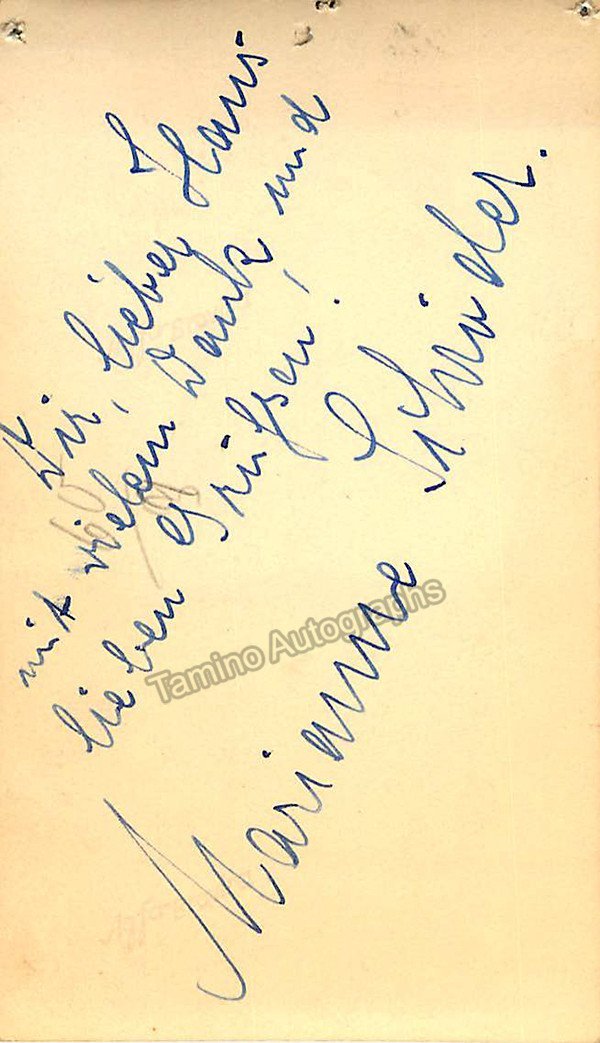 Dir, lieber Hans
mit vielem Dank und
lieben Grüßen!
Marianne Schröder.
Tamino Autographs